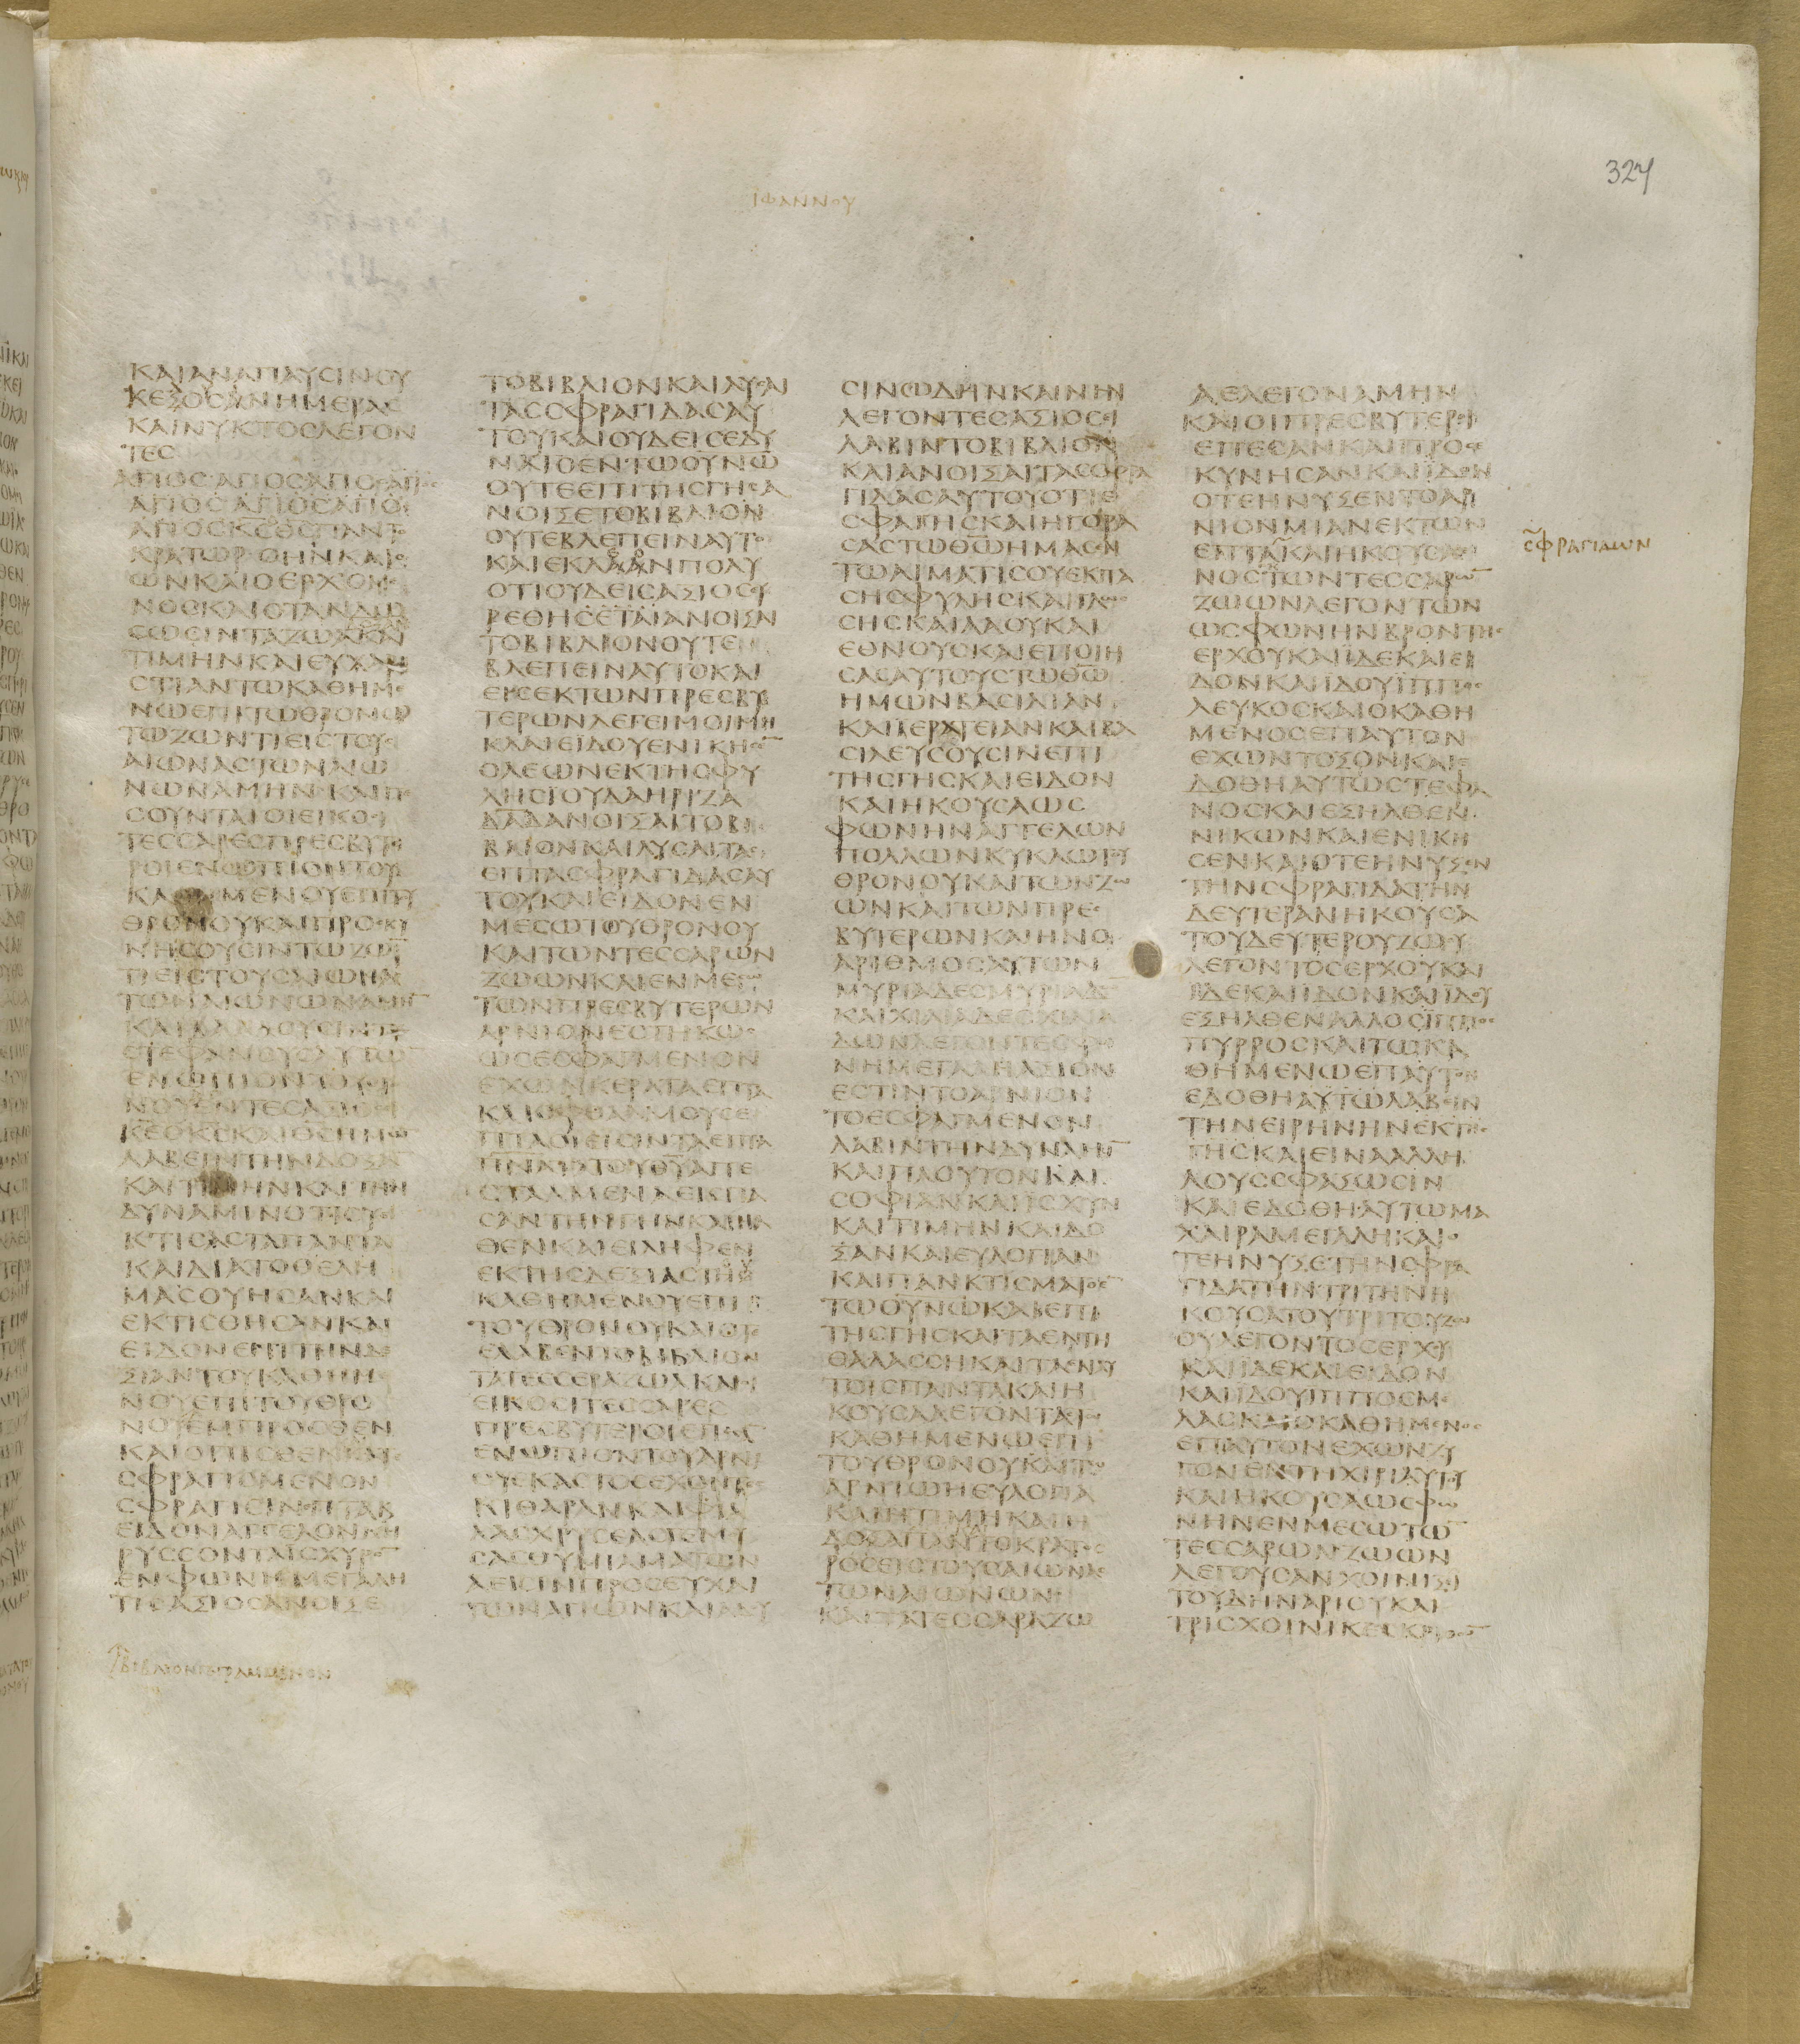 327
ΙΩΑΝΝΟΥ
ΚΑΙΑΝΑΠΑΥϹΙΝΟΥ
ΚΕΞΟϹΑΝΗΜΕΡΑϹ
ΚΑΙΝΥΚΤΟϹΛΕΓΟΝ
ΤΕϹ
ΑΓΙΟϹΑΓΙΟϹΑΓΙΟϹΑΓΙΟϹ
ΑΓΙΟϹΑΓΙΟϹΑΓΙΟϹ
ΑΓΙΟϹΚϹΘϹΠΑΝΤΟ
ΚΡΑΤΩΡΟΗΝΚΑΙΟ
ΩΝΚΑΙΟΕΡΧΟΜΕ
ΝΟϹΚΑΙΟΤΑΝΔΩ
ϹΩϹΙΝΤΑΖΩΑΚΑΙ
ΤΙΜΗΝΚΑΙΕΥΧΑΡΙ
ϹΤΙΑΝΤΩΚΑΘΗΜΕ
ΝΩΕΠΙΤΩΘΡΟΝΩ
ΤΩΖΩΝΤΙΕΙϹΤΟΥϹ
ΑΙΩΝΑϹΤΩΝΑΙΩ
ΝΩΝΑΜΗΝΚΑΙΠΕ
ϹΟΥΝΤΑΙΟΙΕΙΚΟϹΙ
ΤΕϹϹΑΡΕϹΠΡΕϹΒΥΤΕ
ΡΟΙΕΝΩΠΙΟΝΤΟΥ
ΚΑΘΗΜΕΝΟΥΕΠΙΤΟΥ
ΘΡΟΝΟΥΚΑΙΠΡΟϹΚΥ
ΝΗϹΟΥϹΙΝΤΩΖΩΝ
ΤΙΕΙϹΤΟΥϹΑΙΩΝΑϹ
ΤΩΝΑΙΩΝΩΝΑΜΗΝ
ΚΑΙΒΑΛΛΟΥϹΙΝΤΟΥϹ
ϹΤΕΦΑΝΟΥϹΑΥΤΩΝ
ΕΝΩΠΙΟΝΤΟΥΘΡΟ
ΝΟΥΛΕΓΟΝΤΕϹΑΞΙΟϹΕΙ
ΚΕΟΚϹΚΑΙΟΘϹΗΜΩΝ
ΛΑΒΕΙΝΤΗΝΔΟΞΑΝ
ΚΑΙΤΙΜΗΝΚΑΙΤΗΝ
ΔΥΝΑΜΙΝΟΤΙϹΥΕ
ΚΤΙϹΑϹΤΑΠΑΝΤΑ
ΚΑΙΔΙΑΤΟΘΕΛΗ
ΜΑϹΟΥΗϹΑΝΚΑΙ
ΕΚΤΙϹΘΗϹΑΝΚΑΙ
ΕΙΔΟΝΕΠΙΤΗΝΔΕ
ΞΙΑΝΤΟΥΚΑΘΗΜΕ
ΝΟΥΕΠΙΤΟΥΘΡΟ
ΝΟΥΕΜΠΡΟϹΘΕΝ
ΚΑΙΟΠΙϹΘΕΝΚΑΤΕ
ϹΦΡΑΓΙϹΜΕΝΟΝ
ϹΦΡΑΓΙϹΙΝΕΠΤΑΚ
ΕΙΔΟΝΑΓΓΕΛΟΝΚΗ
ΡΥϹϹΟΝΤΑΙϹΧΥΡΟΝ
ΕΝΦΩΝΗΜΕΓΑΛΗ
ΤΙϹΑΞΙΟϹΑΝΟΙΞΕ
ΒΙΒΛΙΟΝΓΕΓΡΑΜΜΕΝΟΝ
ΤΟΒΙΒΛΙΟΝΚΑΙΛΥϹΑΙ
ΤΑϹϹΦΡΑΓΙΔΑϹΑΥ
ΤΟΥΚΑΙΟΥΔΕΙϹΕΔΥ
ΝΑΤΟΕΝΤΩΟΥΝΩ
ΟΥΤΕΕΠΙΤΗϹΓΗϹΑ
ΝΟΙΞΕΤΟΒΙΒΛΙΟΝ
ΟΥΤΕΒΛΕΠΕΙΝΑΥΤΟ
ΚΑΙΕΚΛΑΙΟΝΠΟΛΥ
ΟΤΙΟΥΔΕΙϹΑΞΙΟϹΕΥ
ΡΕΘΗϹΕΤΑΙΑΝΟΙΞΕ
ΤΟΒΙΒΛΙΟΝΟΥΤΕ
ΒΛΕΠΕΙΝΑΥΤΟΚΑΙ
ΕΙϹΕΚΤΩΝΠΡΕϹΒΥ
ΤΕΡΩΝΛΕΓΕΙΜΟΙΜΗ
ΚΛΑΙΕΪΔΟΥΕΝΙΚΗϹΕΝ
ΟΛΕΩΝΕΚΤΗϹΦΥ
ΛΗϹΙΟΥΔΑΗΡΙΖΑ
ΔΑΔΑΝΟΙΞΑΙΤΟΒΙ
ΒΛΙΟΝΚΑΙΛΥϹΑΙΤΑϹ
ΕΠΤΑϹΦΡΑΓΙΔΑϹΑΥ
ΤΟΥΚΑΙΕΙΔΟΝΕΝ
ΜΕϹΩΤΟΥΘΡΟΝΟΥ
ΚΑΙΤΩΝΤΕϹϹΑΡΩΝ
ΖΩΩΝΚΑΙΕΝΜΕϹΩ
ΤΩΝΠΡΕϹΒΥΤΕΡΩΝ
ΑΡΝΙΟΝΕϹΤΗΚΩϹ
ΩϹΕϹΦΑΓΜΕΝΟΝ
ΕΧΩΝΚΕΡΑΤΑΕΠΤΑ
ΚΑΙΟΦΘΑΛΜΟΥϹΕ
ΠΤΑΟΙΕΙϹΙΝΤΑΕΠΤΑ
ΠΝΑΤΑΤΟΥΘΥΑΠΕ
ϹΤΑΛΜΕΝΑΕΙϹΠΑ
ϹΑΝΤΗΝΓΗΝΚΑΙΗΛ
ΘΕΝΚΑΙΕΙΛΗΦΕΝ
ΕΚΤΗϹΔΕΞΙΑϹΤΟΥ
ΚΑΘΗΜΕΝΟΥΕΠΙ
ΤΟΥΘΡΟΝΟΥΚΑΙΟΤΕ
ΕΛΑΒΕΝΤΟΒΙΒΛΙΟΝ
ΤΑΤΕϹϹΕΡΑΖΩΑΚΑΙΟΙ
ΕΙΚΟϹΙΤΕϹϹΑΡΕϹ
ΠΡΕϹΒΥΤΕΡΟΙΕΠΕϹΑΝ
ΕΝΩΠΙΟΝΤΟΥΑΡΝΙ
ΟΥΕΚΑϹΤΟϹΕΧΟΝΤΕϹ
ΚΙΘΑΡΑΝΚΑΙΦΙΑ
ΛΑϹΧΡΥϹΕΑϹΓΕΜΟΥ
ϹΑϹΘΥΜΙΑΜΑΤΩΝ
ΑΕΙϹΙΝΠΡΟϹΕΥΧΑΙ
ΤΩΝΑΓΙΩΝΚΑΙΑΔΟΥ
ϹΙΝΩΔΗΝΚΑΙΝΗΝ
ΛΕΓΟΝΤΕϹΑΞΙΟϹΕΙ
ΛΑΒΙΝΤΟΒΙΒΛΙΟΝ
ΚΑΙΑΝΟΙΞΑΙΤΑϹϹΦΡΑ
ΓΙΔΑϹΑΥΤΟΥΟΤΙΕ
ϹΦΑΓΗϹΚΑΙΗΓΟΡΑ
ϹΑϹΤΩΘΩΗΜΑϹΕΝ
ΤΩΑΙΜΑΤΙϹΟΥΕΚΠΑ
ϹΗϹΦΥΛΗϹΚΑΙΓΛΩϹ
ϹΗϹΚΑΙΛΑΟΥΚΑΙ
ΕΘΝΟΥϹΚΑΙΕΠΟΙΗ
ϹΑϹΑΥΤΟΥϹΤΩΘΩ
ΗΜΩΝΒΑϹΙΛΙΑΝ
ΚΑΙΪΕΡΑΤΕΙΑΝΚΑΙΒΑ
ϹΙΛΕΥϹΟΥϹΙΝΕΠΙ
ΤΗϹΓΗϹΚΑΙΕΙΔΟΝ
ΚΑΙΗΚΟΥϹΑΩϹ
ΦΩΝΗΝΑΓΓΕΛΩΝ
ΠΟΛΛΩΝΚΥΚΛΩΤΟΥ
ΘΡΟΝΟΥΚΑΙΤΩΝΖΩ
ΩΝΚΑΙΤΩΝΠΡΕϹ
ΒΥΤΕΡΩΝΚΑΙΗΝΟ
ΑΡΙΘΜΟϹΑΥΤΩΝ
ΜΥΡΙΑΔΕϹΜΥΡΙΑΔΩΝ
ΚΑΙΧΙΛΙΑΔΕϹΧΙΛΙΑ
ΔΩΝΛΕΓΟΝΤΕϹΦΩ
ΝΗΜΕΓΑΛΗΑΞΙΟΝ
ΕϹΤΙΝΤΟΑΡΝΙΟΝ
ΤΟΕϹΦΑΓΜΕΝΟΝ
ΛΑΒΙΝΤΗΝΔΥΝΑΜΙΝ
ΚΑΙΠΛΟΥΤΟΝΚΑΙ
ϹΟΦΙΑΝΚΑΙΪϹΧΥΝ
ΚΑΙΤΙΜΗΝΚΑΙΔΟ
ΞΑΝΚΑΙΕΥΛΟΓΙΑΝ
ΚΑΙΠΑΝΚΤΙϹΜΑΤΟΕΝ
ΤΩΟΥΝΩΚΑΙΕΠΙ
ΤΗϹΓΗϹΚΑΙΤΑΕΝΤΗ
ΘΑΛΑϹϹΗΚΑΙΤΑΕΝΑΥ
ΤΟΙϹΠΑΝΤΑΚΑΙΗ
ΚΟΥϹΑΛΕΓΟΝΤΑϹΤΩ
ΚΑΘΗΜΕΝΩΕΠΙ
ΤΟΥΘΡΟΝΟΥΚΑΙΤΩ
ΑΡΝΙΩΗΕΥΛΟΓΙΑ
ΚΑΙΗΤΙΜΗΚΑΙΗ
ΔΟΞΑΠΑΝΤΟΚΡΑΤΟ
ΡΟϹΕΙϹΤΟΥϹΑΙΩΝΑϹ
ΤΩΝΑΙΩΝΩΝ
ΚΑΙΤΑΤΕϹϹΑΡΑΖΩ
ΑΕΛΕΓΟΝΑΜΗΝ
ΚΑΙΟΙΠΡΕϹΒΥΤΕΡΟΙ
ΕΠΕϹΑΝΚΑΙΠΡΟϹΕ
ΚΥΝΗϹΑΝΚΑΙΪΔΟΝ
ΟΤΕΗΝΥΞΕΝΤΟΑΡ
ΝΙΟΝΜΙΑΝΕΚΤΩΝ
ΕΠΤΑΚΑΙΗΚΟΥϹΑΕ
ϹΦΡΑΓΙΔΩΝ
ΝΟϹΤΩΝΤΕϹϹΑΡΩΝ
ΖΩΩΝΛΕΓΟΝΤΩΝ
ΩϹΦΩΝΗΝΒΡΟΝΤΗϹ
ΕΡΧΟΥΚΑΙΪΔΕΚΑΙΕΙ
ΔΟΝΚΑΙΪΔΟΥΪΠΠΟϹ
ΛΕΥΚΟϹΚΑΙΟΚΑΘΗ
ΜΕΝΟϹΕΠΑΥΤΟΝ
ΕΧΩΝΤΟΞΟΝΚΑΙΕ
ΔΟΘΗΑΥΤΩϹΤΕΦΑ
ΝΟϹΚΑΙΕΞΗΛΘΕΝ
ΝΙΚΩΝΚΑΙΕΝΙΚΗ
ϹΕΝΚΑΙΟΤΕΗΝΥΞΕΝ
ΤΗΝϹΦΡΑΓΙΔΑΤΗΝ
ΔΕΥΤΕΡΑΝΗΚΟΥϹΑ
ΤΟΥΔΕΥΤΕΡΟΥΖΩΟΥ
ΛΕΓΟΝΤΟϹΕΡΧΟΥΚΑΙ
ΪΔΕΚΑΙΪΔΟΝΚΑΙΪΔΟΥ
ΕΞΗΛΘΕΝΑΛΛΟϹΪΠΠΟϹ
ΠΥΡΡΟϹΚΑΙΤΩΚΑ
ΘΗΜΕΝΩΕΠΑΥΤΟΝ
ΕΔΟΘΗΑΥΤΩΛΑΒΕΙΝ
ΤΗΝΕΙΡΗΝΗΝΕΚΤΗϹ
ΓΗϹΚΑΙΕΙΝΑΑΛΛΗ
ΛΟΥϹϹΦΑΞΩϹΙΝ
ΚΑΙΕΔΟΘΗΑΥΤΩΜΑ
ΧΑΙΡΑΜΕΓΑΛΗΚΑΙΟ
ΤΕΗΝΥΞΕΤΗΝϹΦΡΑ
ΓΙΔΑΤΗΝΤΡΙΤΗΝΗ
ΚΟΥϹΑΤΟΥΤΡΙΤΟΥΖΩ
ΟΥΛΕΓΟΝΤΟϹΕΡΧΟΥ
ΚΑΙΪΔΕΚΑΙΕΙΔΟΝ
ΚΑΙΪΔΟΥΪΠΠΟϹΜΕ
ΛΑϹΚΑΙΟΚΑΘΗΜΕΝΟϹ
ΕΠΑΥΤΟΝΕΧΩΝΖΥ
ΓΟΝΕΝΤΗΧΙΡΙΑΥΤΟΥ
ΚΑΙΗΚΟΥϹΑΩϹΦΩ
ΝΗΝΕΝΜΕϹΩΤΩΝ
ΤΕϹϹΑΡΩΝΖΩΩΝ
ΛΕΓΟΥϹΑΝΧΟΙΝΙΞϹΙ
ΤΟΥΔΗΝΑΡΙΟΥΚΑΙ
ΤΡΙϹΧΟΙΝΙΚΕϹΚΡΙΘΩΝ